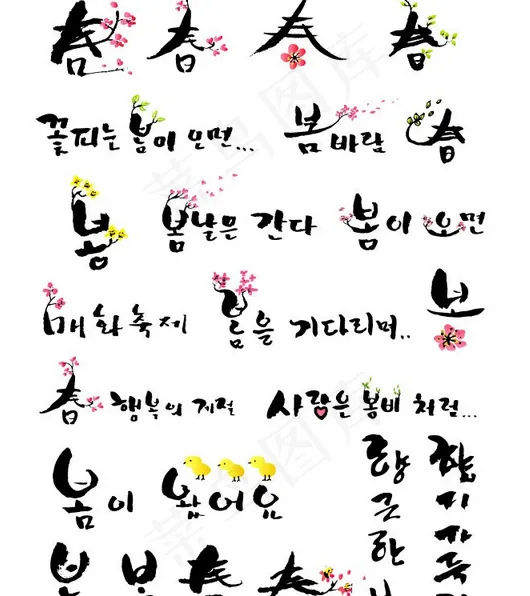 春 春 春 春
꽃피는 봄이 오면... 봄바람 春
봄 봄날은 간다 봄이 오면
매화축제 봄을 기다리며.. 봄
春 행복의 계절 사랑은 봄비 처럼...
봄이 왔어요
봄 봄 春 春
菜鸟图库